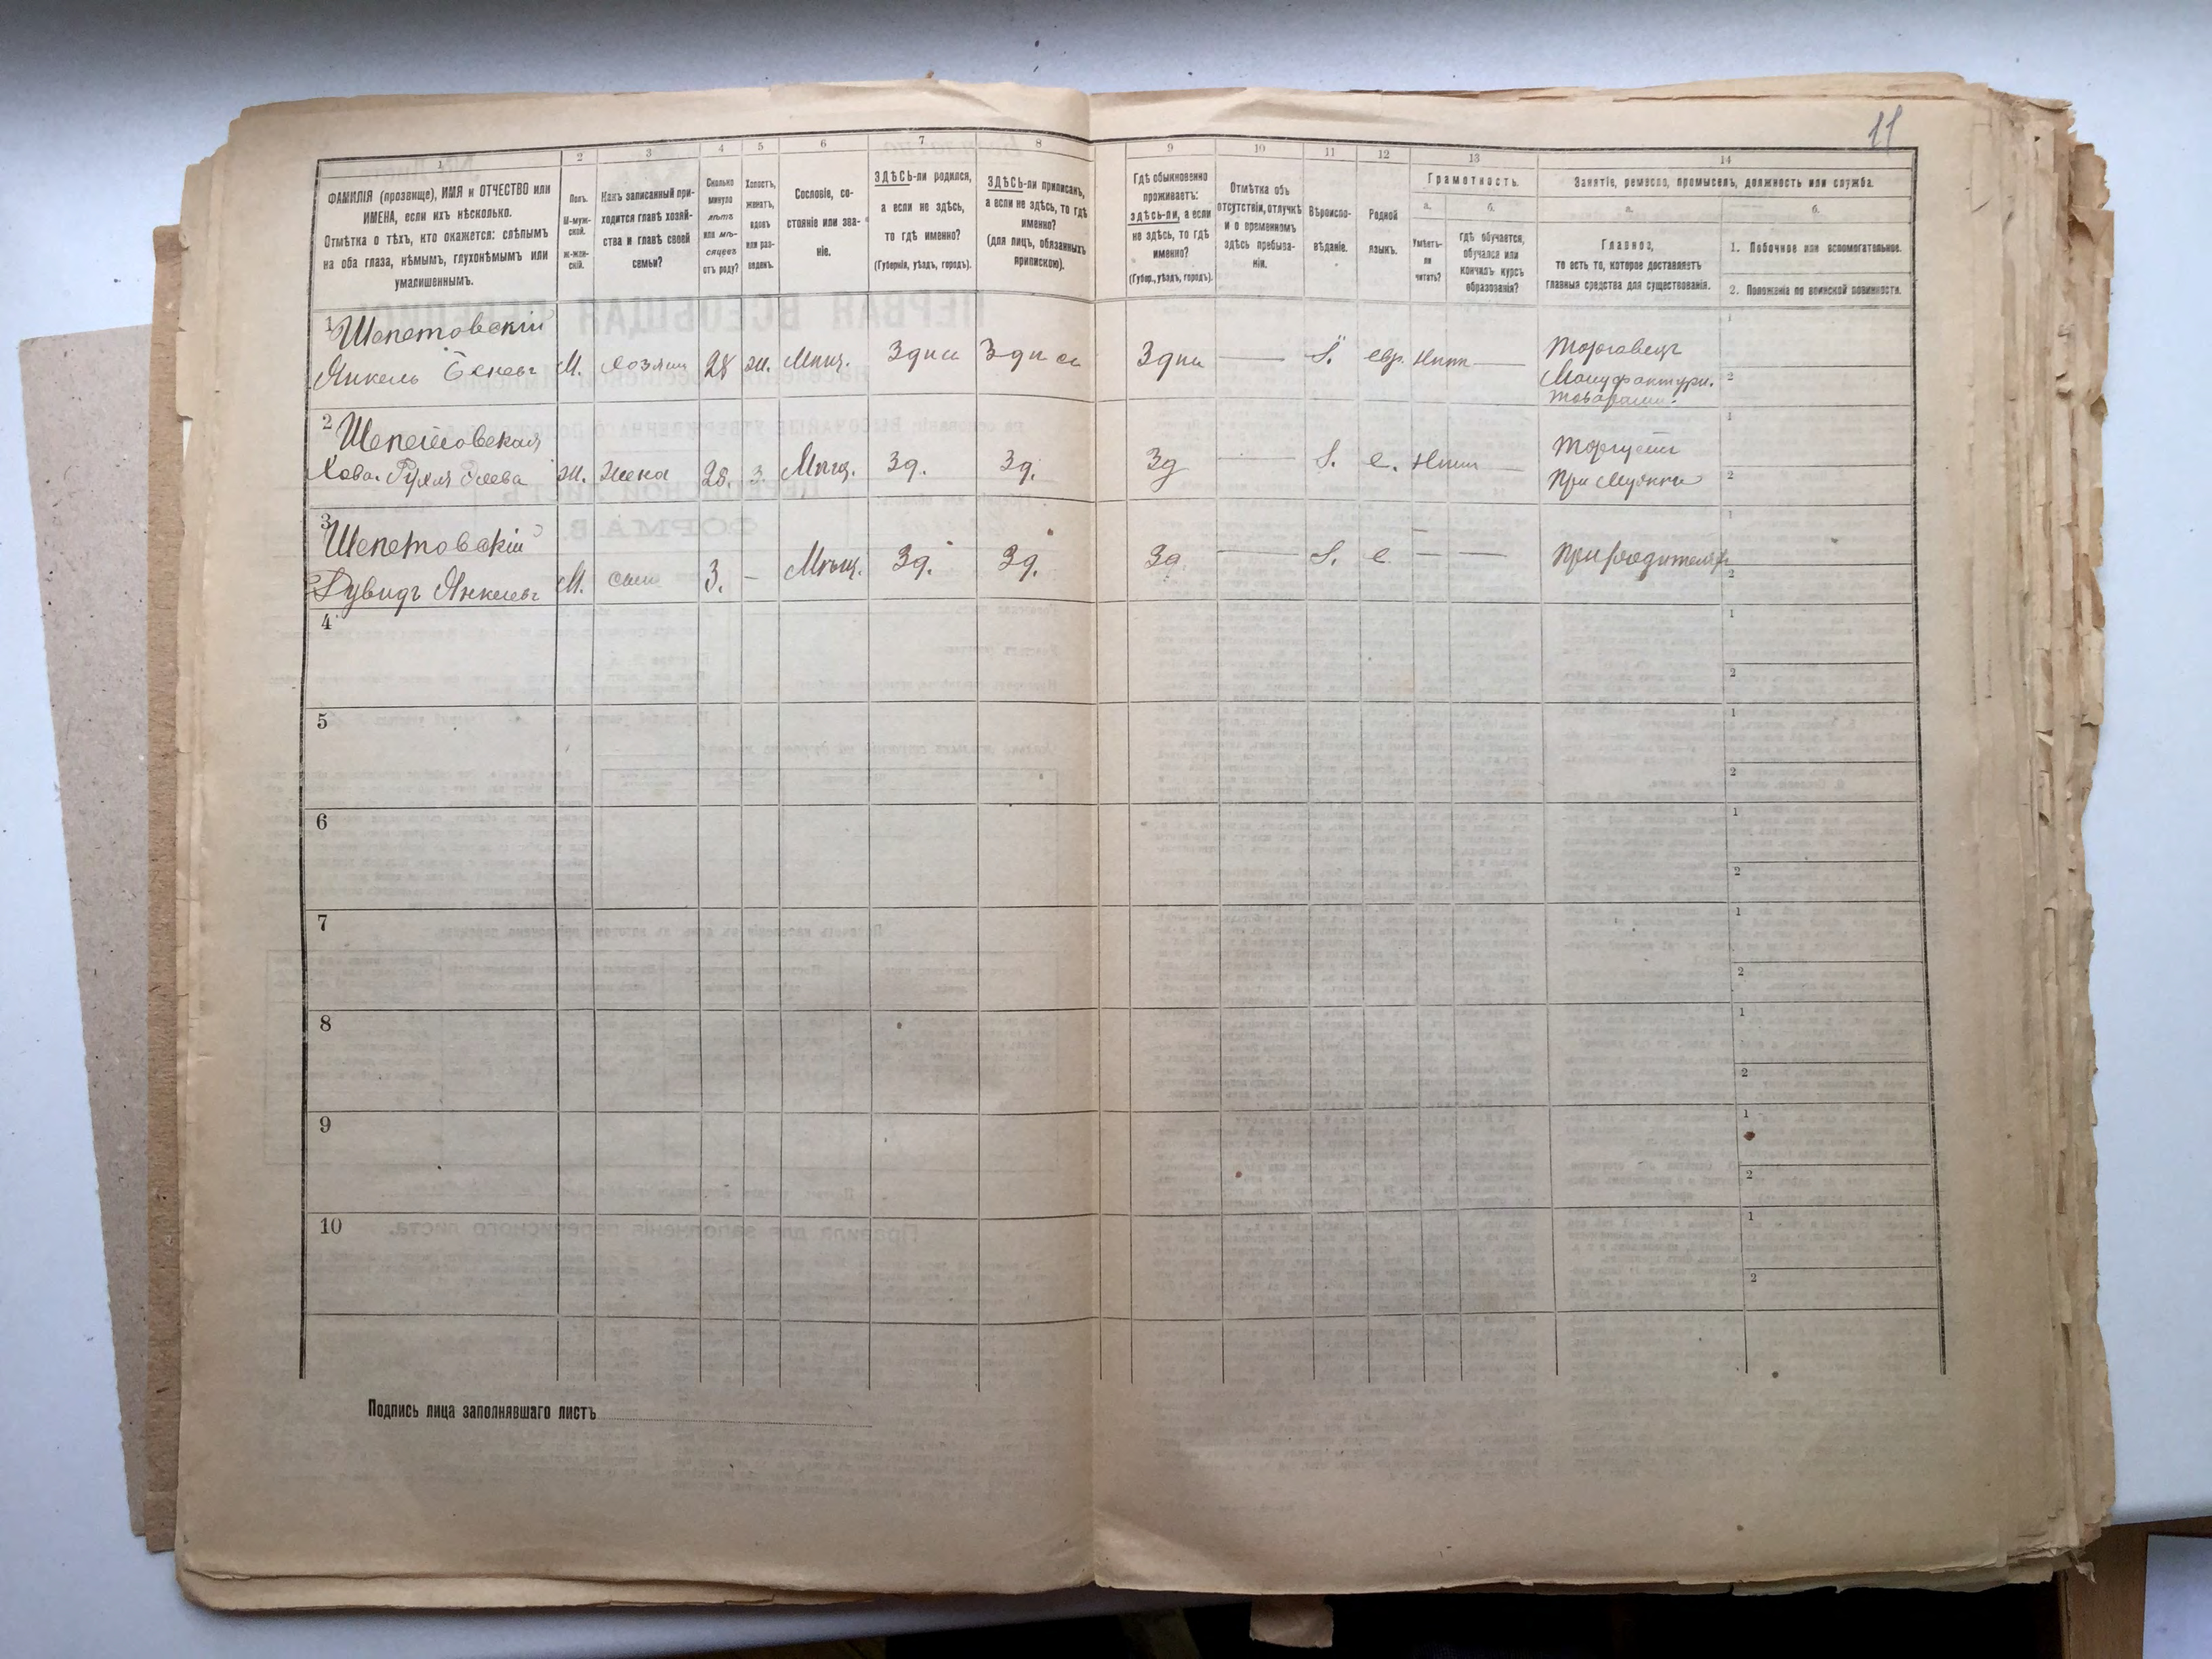 11
1
ФАМИЛІЯ (прозвище), ИМЯ и ОТЧЕСТВО или
ИМЕНА, если ихъ нѣсколько.
Отмѣтка о тѣхъ, кто окажется: слѣпымъ
на оба глаза, нѣмымъ, глухонѣмымъ или
умалишеннымъ.
2
Полъ.
М-муж-
ской.
Ж-жен-
скій.
3
Какъ записанный при-
ходится главѣ хозяй-
ства и главѣ своей
семьи?
4
Сколько
минуло
лѣтъ
или мѣ-
сяцевъ
отъ роду?
5
Холостъ,
женатъ,
вдовъ
или раз-
веденъ.
6
Сословіе, со-
стояніе или зва-
ніе.
7
ЗДѢСЬ-ли родился,
а если не здѣсь,
то гдѣ именно?
(Губернія, уѣздъ, городъ).
8
ЗДѢСЬ-ли приписанъ,
а если не здѣсь, то гдѣ
именно?
(для лицъ, обязанныхъ
припискою).
9
Гдѣ обыкновенно
проживаетъ:
здѣсь-ли, а если
не здѣсь, то гдѣ
именно?
(Губер., уѣздъ, городъ).
10
Отмѣтка объ
отсутствіи, отлучкѣ
и о временномъ
здѣсь пребыва-
ніи.
11
Вѣроиспо-
вѣданіе.
12
Родной
языкъ.
13
Грамотность.
а.
Умѣетъ-
ли
читать?
б.
гдѣ обучается,
обучался или
кончилъ курсъ
образованія?
14
Занятіе, ремесло, промыселъ, должность или служба.
а.
Главное,
то есть то, которое доставляетъ
главныя средства для существованія.
б.
1. Побочное или вспомогательное.
2. Положеніе по воинской повинности.
1
Шепетовскій
Янкель
М.
хозяин
28
ж.
Мѣщ.
евр.
Торговецъ
Мануфактурн.
товарами.
1
2
2
Шепетовская
Хова Рухля
ж.
Жена
28.
з.
Мѣщ.
Зд.
Зд.
Зд
е.
1
2
3
Шепетовскій
Дувидъ Янкелевъ
М.
сын
3.
—
Мѣщ.
Зд.
Зд.
Зд
е
— —
При родителяхъ
1
2
4
1
2
5
1
2
6
1
2
7
1
2
8
1
2
9
1
2
10
1
2
Подпись лица заполнявшаго листъ